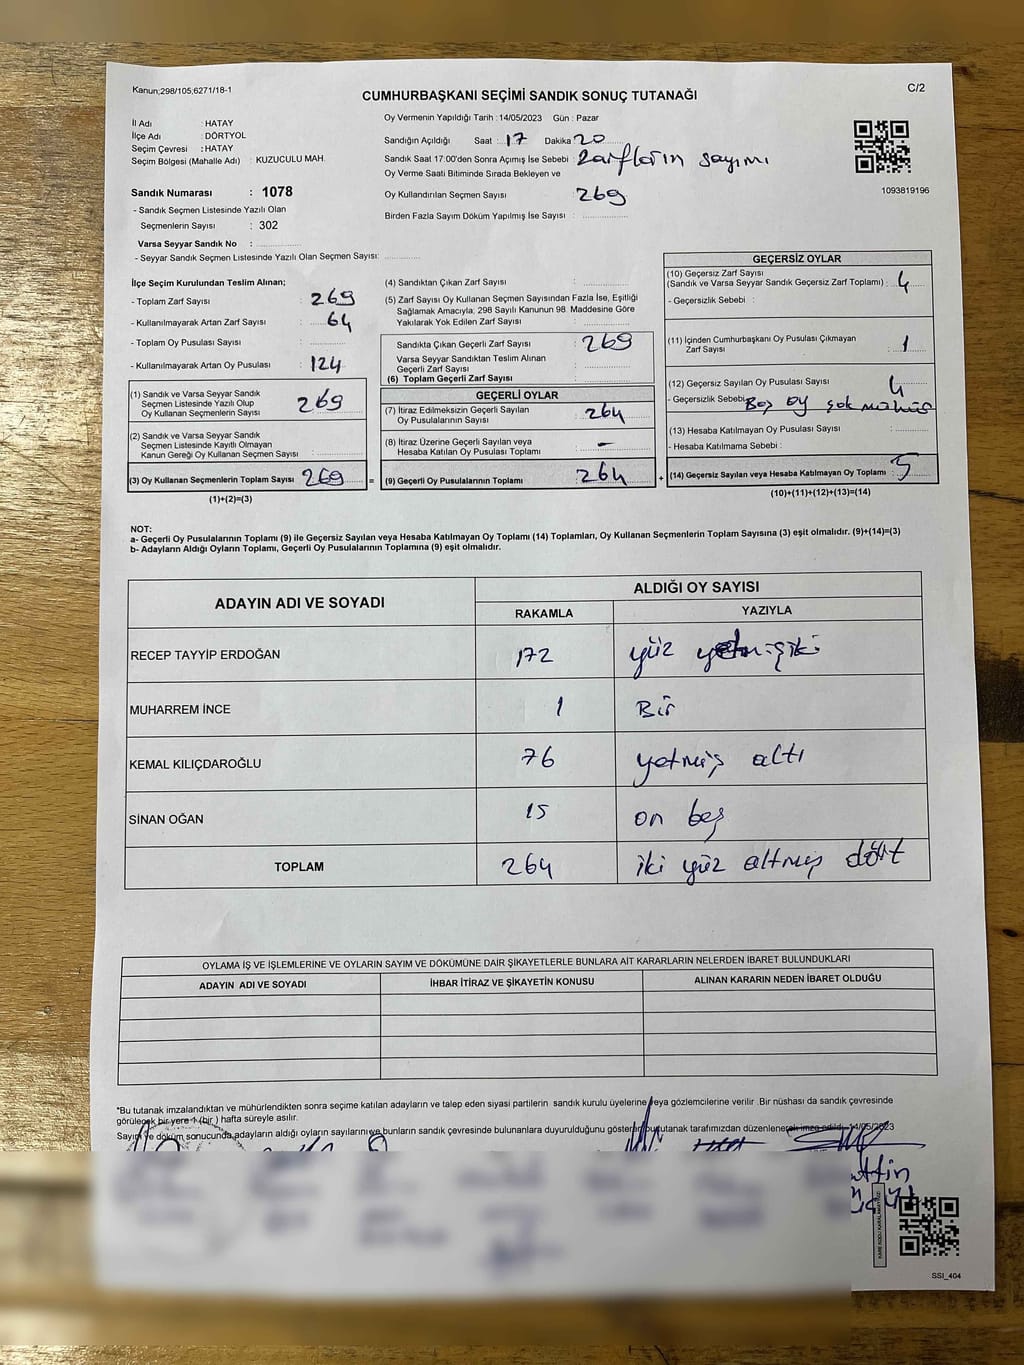 Kanun;298/105;6271/18-1
C/2
CUMHURBAŞKANI SEÇİMİ SANDIK SONUÇ TUTANAĞI
İl Adı : HATAY
İlçe Adı : DÖRTYOL
Seçim Çevresi : HATAY
Seçim Bölgesi (Mahalle Adı) : KUZUCULU MAH.
Sandık Numarası : 1078
- Sandık Seçmen Listesinde Yazılı Olan
Seçmenlerin Sayısı : 302
Varsa Seyyar Sandık No :
- Seyyar Sandık Seçmen Listesinde Yazılı Olan Seçmen Sayısı:
Oy Vermenin Yapıldığı Tarih : 14/05/2023 Gün : Pazar
Sandığın Açıldığı Saat : 17 Dakika 20
Sandık Saat 17:00'den Sonra Açımış İse Sebebi : zarfların sayımı
Oy Verme Saati Bitiminde Sırada Bekleyen ve
Oy Kullandırılan Seçmen Sayısı : 269
Birden Fazla Sayım Döküm Yapılmış İse Sayısı :
1093819196
İlçe Seçim Kurulundan Teslim Alınan;
- Toplam Zarf Sayısı : 269
- Kullanılmayarak Artan Zarf Sayısı : 64
- Toplam Oy Pusulası Sayısı :
- Kullanılmayarak Artan Oy Pusulası : 124
(1) Sandık ve Varsa Seyyar Sandık
Seçmen Listesinde Yazılı Olup
Oy Kullanan Seçmenlerin Sayısı : 269
(2) Sandık ve Varsa Seyyar Sandık
Seçmen Listesinde Kayıtlı Olmayan
Kanun Gereği Oy Kullanan Seçmen Sayısı :
(3) Oy Kullanan Seçmenlerin Toplam Sayısı : 269 =
(1)+(2)=(3)
(4) Sandıktan Çıkan Zarf Sayısı :
(5) Zarf Sayısı Oy Kullanan Seçmen Sayısından Fazla İse, Eşitliği
Sağlamak Amacıyla, 298 Sayılı Kanunun 98. Maddesine Göre
Yakılarak Yok Edilen Zarf Sayısı :
Sandıkta Çıkan Geçerli Zarf Sayısı : 269
Varsa Seyyar Sandıktan Teslim Alınan
Geçerli Zarf Sayısı :
(6) Toplam Geçerli Zarf Sayısı :
GEÇERLİ OYLAR
(7) İtiraz Edilmeksizin Geçerli Sayılan
Oy Pusulalarının Sayısı : 264
(8) İtiraz Üzerine Geçerli Sayılan veya
Hesaba Katılan Oy Pusulası Toplamı : -
(9) Geçerli Oy Pusulalarının Toplamı : 264 +
GEÇERSİZ OYLAR
(10) Geçersiz Zarf Sayısı
(Sandık ve Varsa Seyyar Sandık Geçersiz Zarf Toplamı) : 4
- Geçersizlik Sebebi :
(11) İçinden Cumhurbaşkanı Oy Pusulası Çıkmayan
Zarf Sayısı : 1
(12) Geçersiz Sayılan Oy Pusulası Sayısı : 4
- Geçersizlik Sebebi: Boş oy
(13) Hesaba Katılmayan Oy Pusulası Sayısı :
- Hesaba Katılmama Sebebi :
(14) Geçersiz Sayılan veya Hesaba Katılmayan Oy Toplamı : 5
(10)+(11)+(12)+(13)=(14)
NOT:
a- Geçerli Oy Pusulalarının Toplamı (9) ile Geçersiz Sayılan veya Hesaba Katılmayan Oy Toplamı (14) Toplamları, Oy Kullanan Seçmenlerin Toplam Sayısına (3) eşit olmalıdır. (9)+(14)=(3)
b- Adayların Aldığı Oyların Toplamı, Geçerli Oy Pusulalarının Toplamına (9) eşit olmalıdır.
ADAYIN ADI VE SOYADI
ALDIĞI OY SAYISI
RAKAMLA YAZIYLA
RECEP TAYYİP ERDOĞAN 172 yüz yetmişiki
MUHARREM İNCE 1 Bir
KEMAL KILIÇDAROĞLU 76 yetmiş altı
SİNAN OĞAN 15 on beş
TOPLAM 264 iki yüz altmış dört
OYLAMA İŞ VE İŞLEMLERİNE VE OYLARIN SAYIM VE DÖKÜMÜNE DAİR ŞİKAYETLERLE BUNLARA AİT KARARLARIN NELERDEN İBARET BULUNDUKLARI
ADAYIN ADI VE SOYADI İHBAR İTİRAZ VE ŞİKAYETİN KONUSU ALINAN KARARIN NEDEN İBARET OLDUĞU
*Bu tutanak imzalandıktan ve mühürlendikten sonra seçime katılan adayların ve talep eden siyasi partilerin sandık kurulu üyelerine veya gözlemcilerine verilir .Bir nüshası da sandık çevresinde
görülecek bir yere 1 (bir ) hafta süreyle asılır.
Sayım ve döküm sonucunda adayların aldığı oyların sayılarını ve bunların sandık çevresinde bulunanlara duyurulduğunu gösteren bu tutanak tarafımızdan düzenlenerek imza edildi. 14/05/2023
KARE KODU KARALAMAYINIZ!
SSI_404